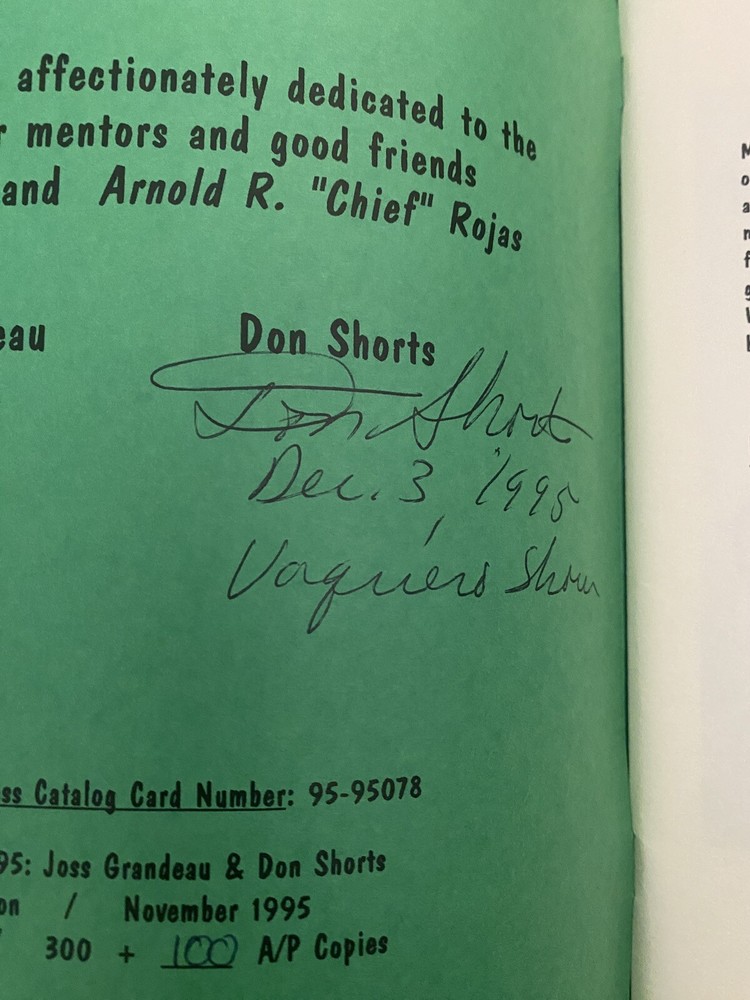 affectionately dedicated to the
r mentors and good friends
and Arnold R. "Chief" Rojas
eau Don Shorts
Don Shorts
Dec. 3, 1995
Vaquero Show
ss Catalog Card Number: 95-95078
95: Joss Grandeau & Don Shorts
on / November 1995
300 + 100 A/P Copies